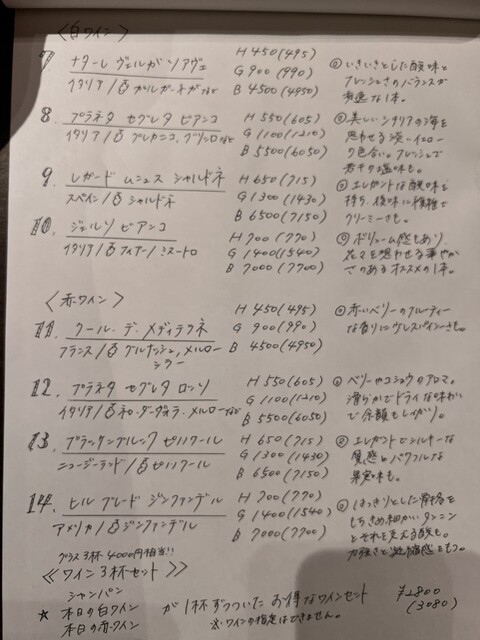 <白ワイン>
7. ナターレ ヴェルガ ソアヴェ H 450(495)
イタリア/白ガルガーネガなど G 900(990)
B 4500(4950)
◎いきいきとした酸味と
フレッシュさのバランスが
な1本。
8. プラネタ セグレタ ビアンコ H 550(605)
イタリア/白グレカニコ、など G 1100(1210)
B 5500(6050)
◎美しいシチリアの海を
思わせる淡いイエロー
の色合い。フレッシュで
若干の塩味も。
9. レガード ムニュス シャルドネ H 650(715)
スペイン/白シャルドネ G 1300(1430)
B 6500(7150)
◎エレガントな酸味を
持ち、後味に複雑で
クリーミーさも。
10. ジェルソ ビアンコ H 700(770)
イタリア/白フィアーノ/ミヌートロ G 1400(1540)
B 7000(7700)
◎ボリューム感もあり、
花々を想わせる華やか
さのあるオススメの1本。
<赤ワイン>
11. クール・デ・メディテラネ H 450(495)
フランス/ グルナッシュ、メルロー G 900(990)
シラー B 4500(4950)
◎赤いベリーのフルーティー
な香りに
12. プラネタ セグレタ ロッソ H 550(605)
イタリア/ ネロ・ダーヴォラ、メルローなど G 1100(1210)
B 5500(6050)
◎ベリーやコショウのアロマ。
滑らかでドライな味わい
で余韻もしっかり。
13. ブラッケンブルック ピノノワール H 650(715)
ニュージーランド/ ピノノワール G 1300(1430)
B 6500(7150)
◎エレガントでシルキーな
質感とパワフルな
果実味も。
14. ヒル ブレード ジンファンデル H 700(770)
アメリカ/ ジンファンデル G 1400(1540)
B 7000(7700)
◎はっきりとした骨格を
もちきめ細かいタンニン
とそれを支える酸も。
力強さと凝縮感をもつ。
グラス3杯 4000円相当!!
<<ワイン3杯セット>>
シャンパン
★ 本日の白ワイン が1杯ずつついたお得なワインセット ¥2800
本日の赤ワイン ※ワインの指定はできません。 (3080)